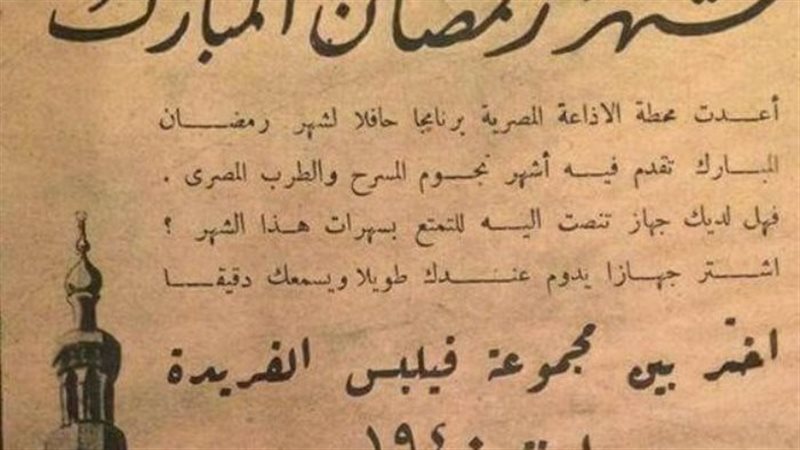 شهر رمضان المبارك
أعدت محطة الاذاعة المصرية برنامجا حافلا لشهر رمضان
المبارك تقدم فيه أشهر نجوم المسرح والطرب المصرى .
فهل لديك جهاز تنصت اليه للتمتع بسهرات هذا الشهر ؟
اشتر جهازا يدوم عندك طويلا ويسمعك دقيقا
اختر بين مجموعة فيلبس الفريدة
١٩٤٠